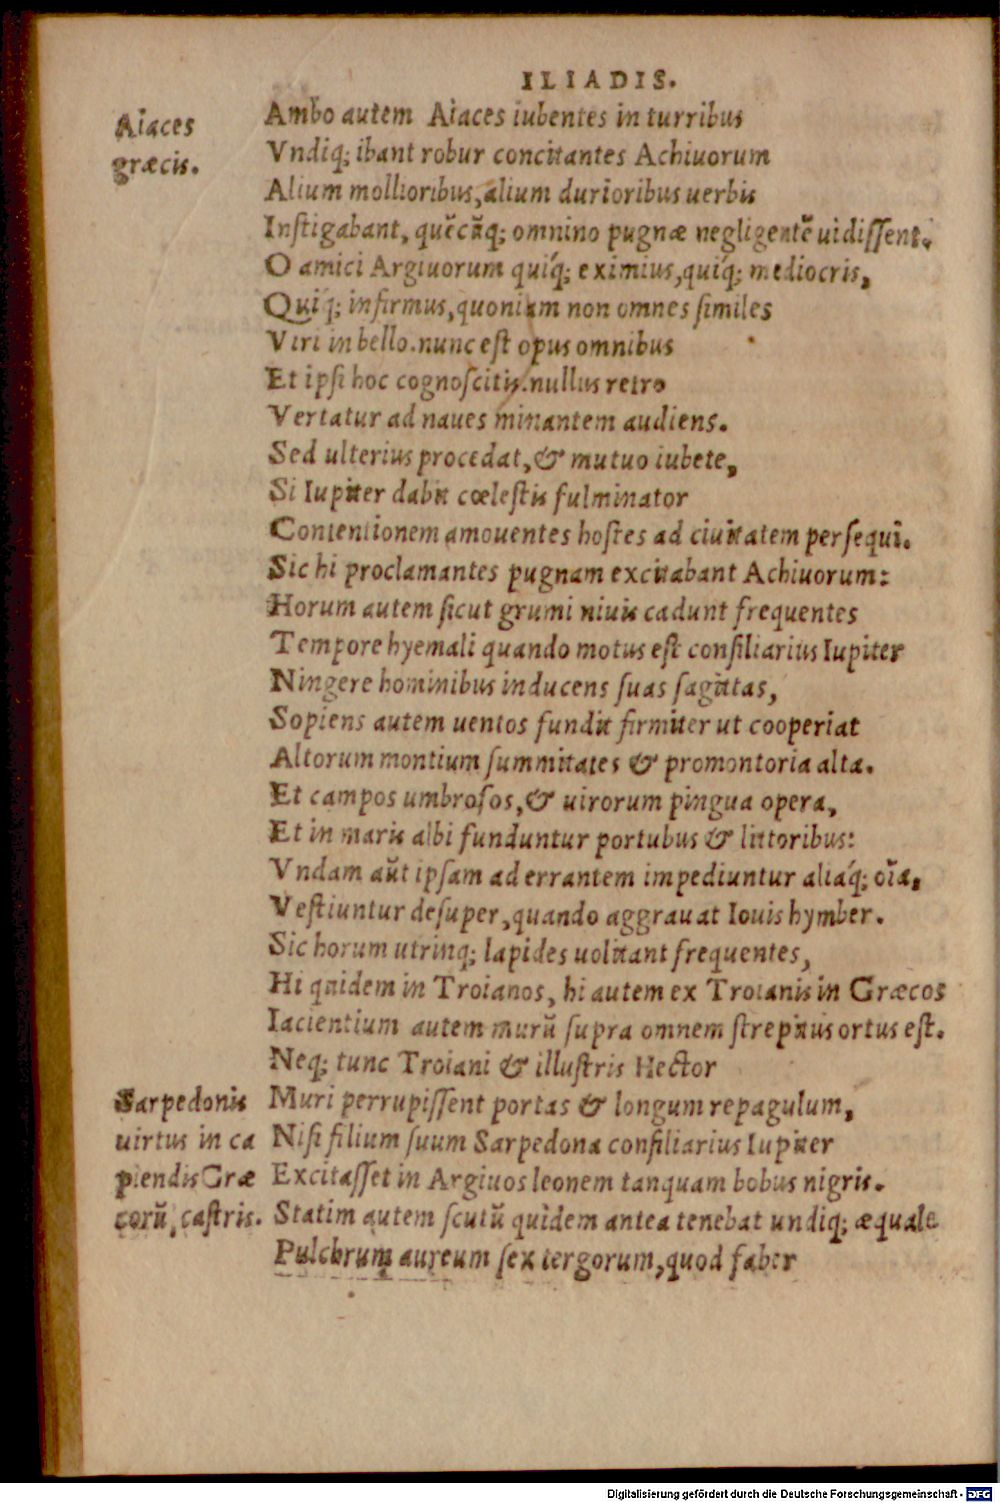 ILIADIS.
Aiaces
græcis.
Ambo autem Aiaces iubentes in turribus
Vndiq; ibant robur concitantes Achiuorum
Alium mollioribus, alium durioribus uerbis
Instigabant, quẽcũq; omnino pugnæ negligentẽ uidissent.
O amici Argiuorum quiq́; eximius, quiq́; mediocris,
Quiq́; infirmus, quoniam non omnes similes
Viri in bello. nunc est opus omnibus
Et ipsi hoc cognoscitis. nullus retro
Vertatur ad naues minantem audiens.
Sed ulterius procedat, & mutuo iubete,
Si Iupiter dabit cœlestis fulminator
Contentionem amouentes hostes ad ciuitatem persequi.
Sic hi proclamantes pugnam excitabant Achiuorum:
Horum autem sicut grumi niuis cadunt frequentes
Tempore hyemali quando motus est consiliarius Iupiter
Ningere hominibus inducens suas sagittas,
Sopiens autem uentos fundit firmiter ut cooperiat
Altorum montium summitates & promontoria alta.
Et campos umbrosos, & uirorum pingua opera,
Et in maris albi funduntur portubus & littoribus:
Vndam aũt ipsam ad errantem impediuntur aliaq́; oĩa,
Vestiuntur desuper, quando aggrauat Iouis hymber.
Sic horum utrinq; lapides uolitant frequentes,
Hi quidem in Troianos, hi autem ex Troianis in Græcos
Iacientium autem murũ supra omnem strepitus ortus est.
Neq; tunc Troiani & illustris Hector
Muri perrupissent portas & longum repagulum,
Nisi filium suum Sarpedona consiliarius Iupiter
Excitasset in Argiuos leonem tanquam bobus nigris.
Statim autem scutũ quidem antea tenebat undiq; æquale
Pulchrum aureum sex tergorum, quod faber
Sarpedonis
uirtus in ca
piendis Græ
corũ, castris.
Digitalisierung gefördert durch die Deutsche Forschungsgemeinschaft - DFG